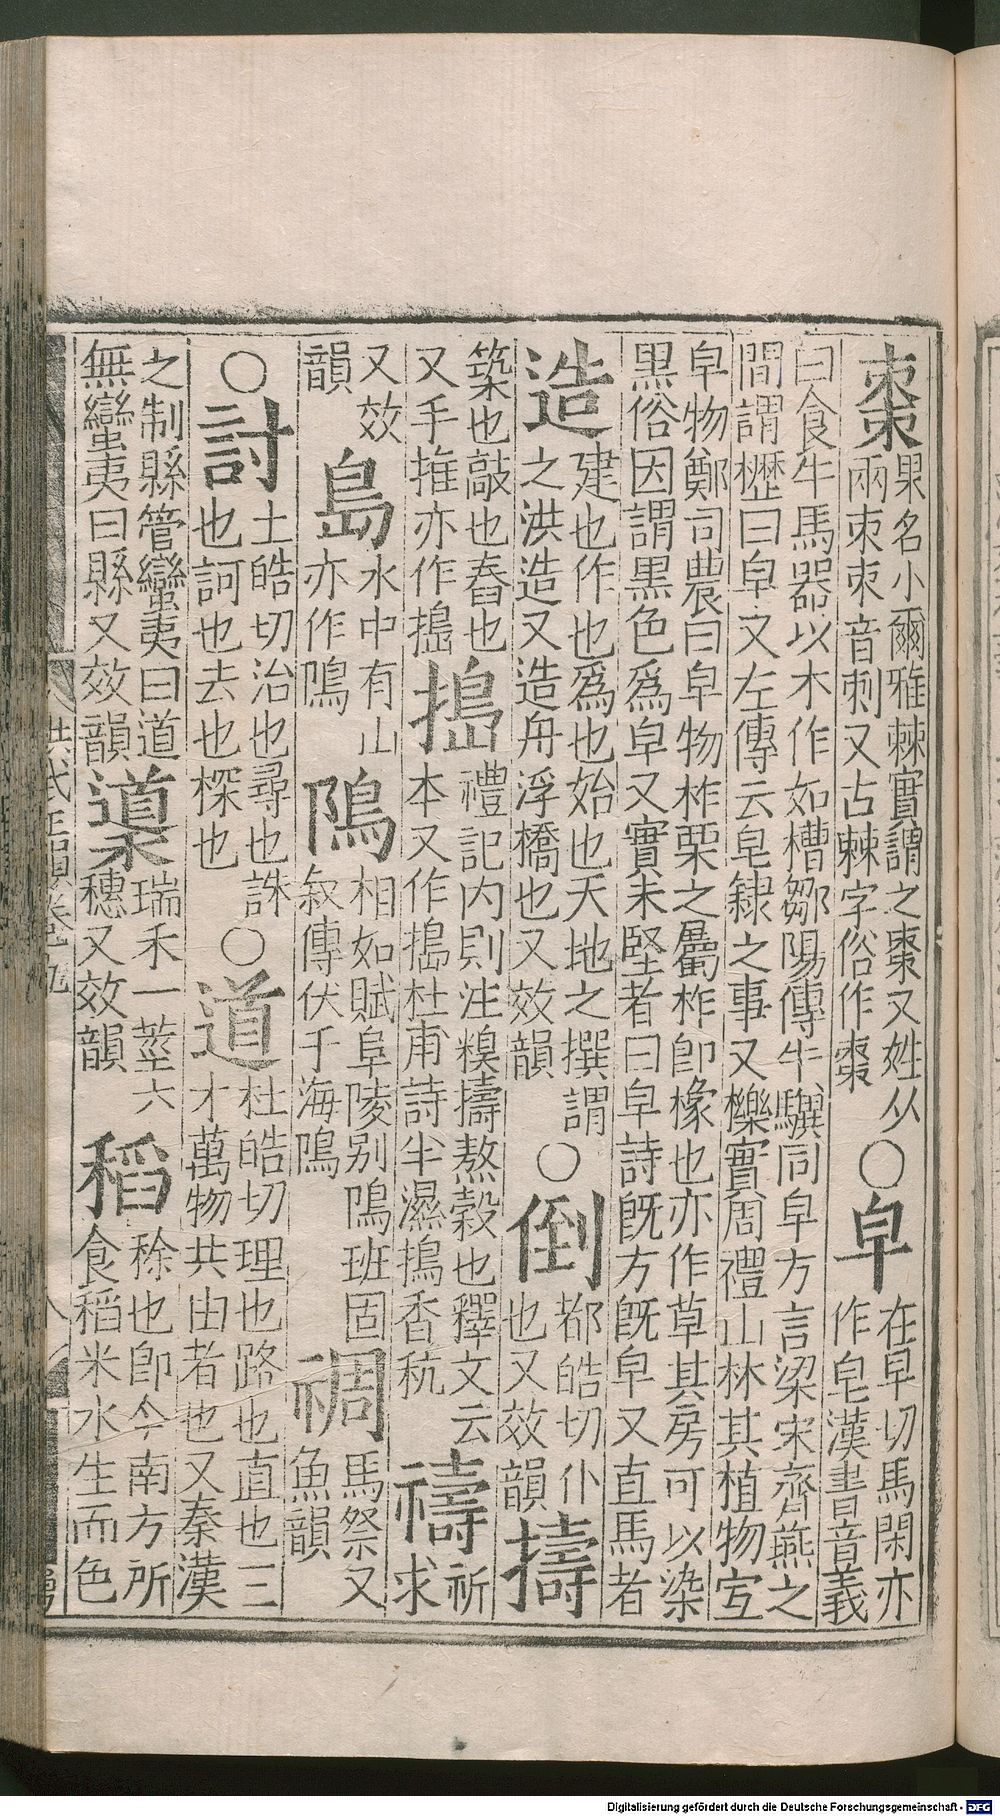 棗果名小爾雅棘實謂之棗又姓从兩朿朿音刺又古棘字俗作棗○皁在早切馬閑亦作皂漢書音義
曰食牛馬器以木作如槽鄒陽傳牛驥同皁方言梁宋齊燕之間謂櫪曰皁又左傳云皂隸之事又櫟實周禮山林其植物宜
皁物鄭司農曰皁物柞栗之屬柞卽橡也亦作草其房可以染黑俗因謂黑色爲皁又實未堅者曰皁詩旣方旣皁又直馬者
造建也作也爲也始也天地之撰謂之洪造又造舟浮橋也又效韻○倒都皓切仆也又效韻擣
築也敲也舂也又手推亦作搗搗禮記内則注糗擣熬穀也釋文云本又作搗杜甫詩半濕搗香秔禱祈求
又效韻島水中有山亦作隝隝相如賦阜陵别隝班固叙傳伏于海隝禂馬祭又魚韻
○討土皓切治也尋也誅也訶也去也探也○道杜皓切理也路也直也三才萬物共由者也又秦漢
之制縣管蠻夷曰道無蠻夷曰縣又效韻䆃瑞禾一莖六穗又效韻稻稌也卽今南方所食稻米水生而色
洪武正韻卷之九
八
Digitalisierung gefördert durch die Deutsche Forschungsgemeinschaft - DFG